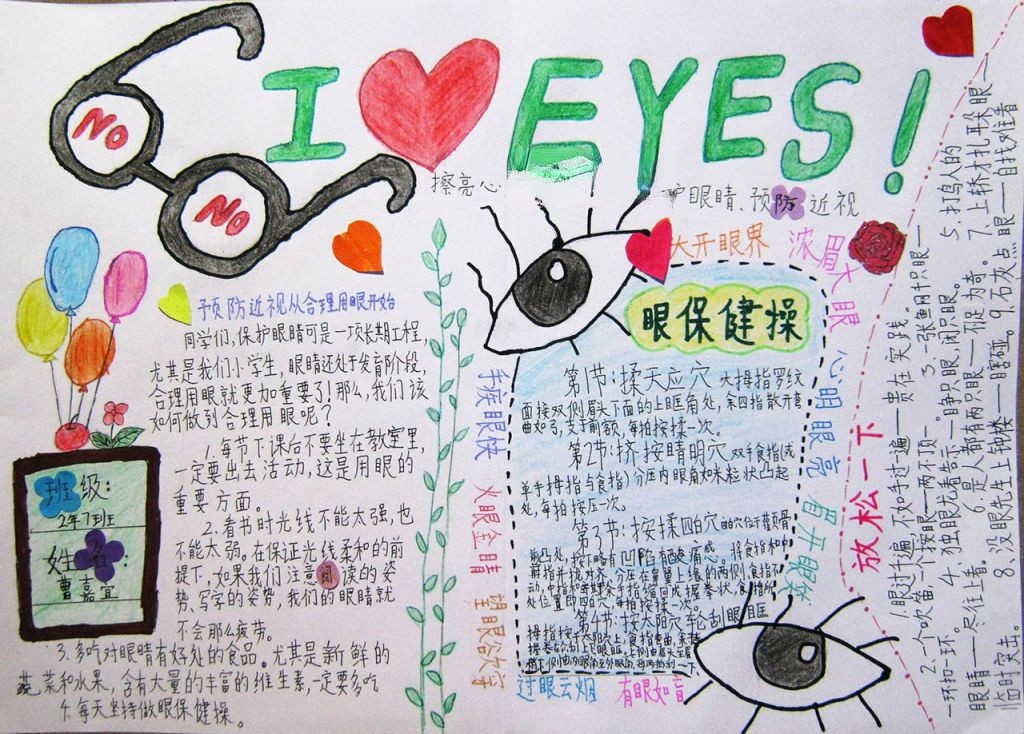 NO
NO
I EYES!
擦亮心
眼睛、预防近视
预防近视从合理用眼开始
同学们,保护眼睛可是一项长期工程,
尤其是我们小学生,眼睛还处于发育阶段,
合理用眼就更加重要了!那么,我们该
如何做到合理用眼呢?
1.每节下课后不要坐在教室里,
一定要出去活动,这是用眼的
重要方面。
2.看书时光线不能太强,也
不能太弱。在保证光线柔和的前
提下,如果我们注意阅读的姿
势、写字的姿势,我们的眼睛就
不会那么疲劳。
3.多吃对眼睛有好处的食品。尤其是新鲜的
蔬菜和水果,含有大量的丰富的维生素,一定要多吃
4.每天坚持做眼保健操。
班级:
2年7班
姓名:
曹嘉宜
手疾眼快
火眼金睛
望眼欲穿
大开眼界
浓眉大眼
心明眼亮
眉开眼笑
过眼云烟
有眼如盲
眼保健操
第1节:揉天应穴 大拇指罗纹
面按双侧眉头下面的上眶角处,余四指散开弯
曲如弓,支于前额,每拍按揉一次。
第2节:挤按睛明穴 双手食指(或
单手拇指与食指)分压内眼角如米粒状凸起
处,每拍按压一次。
第3节:按揉四白穴
每拍按揉一次。
第4节:按太阳穴轮刮眼眶
放松一下
1.眼过千遍不如手过一遍——贵在实践。
2.一个吹笛一个按眼——两不顶一。 3.一张鱼网千只眼——
一环扣一环。 4.独眼龙看告示——睁只眼,闭只眼。 5.打鸟人的
眼睛——尽往上看。 6.是人都有两只眼——不足为奇。 7.上轿才扎耳朵眼——
临时突击。 8.没眼先生上钟楼——瞎碰。 9.石灰点眼——自找难看